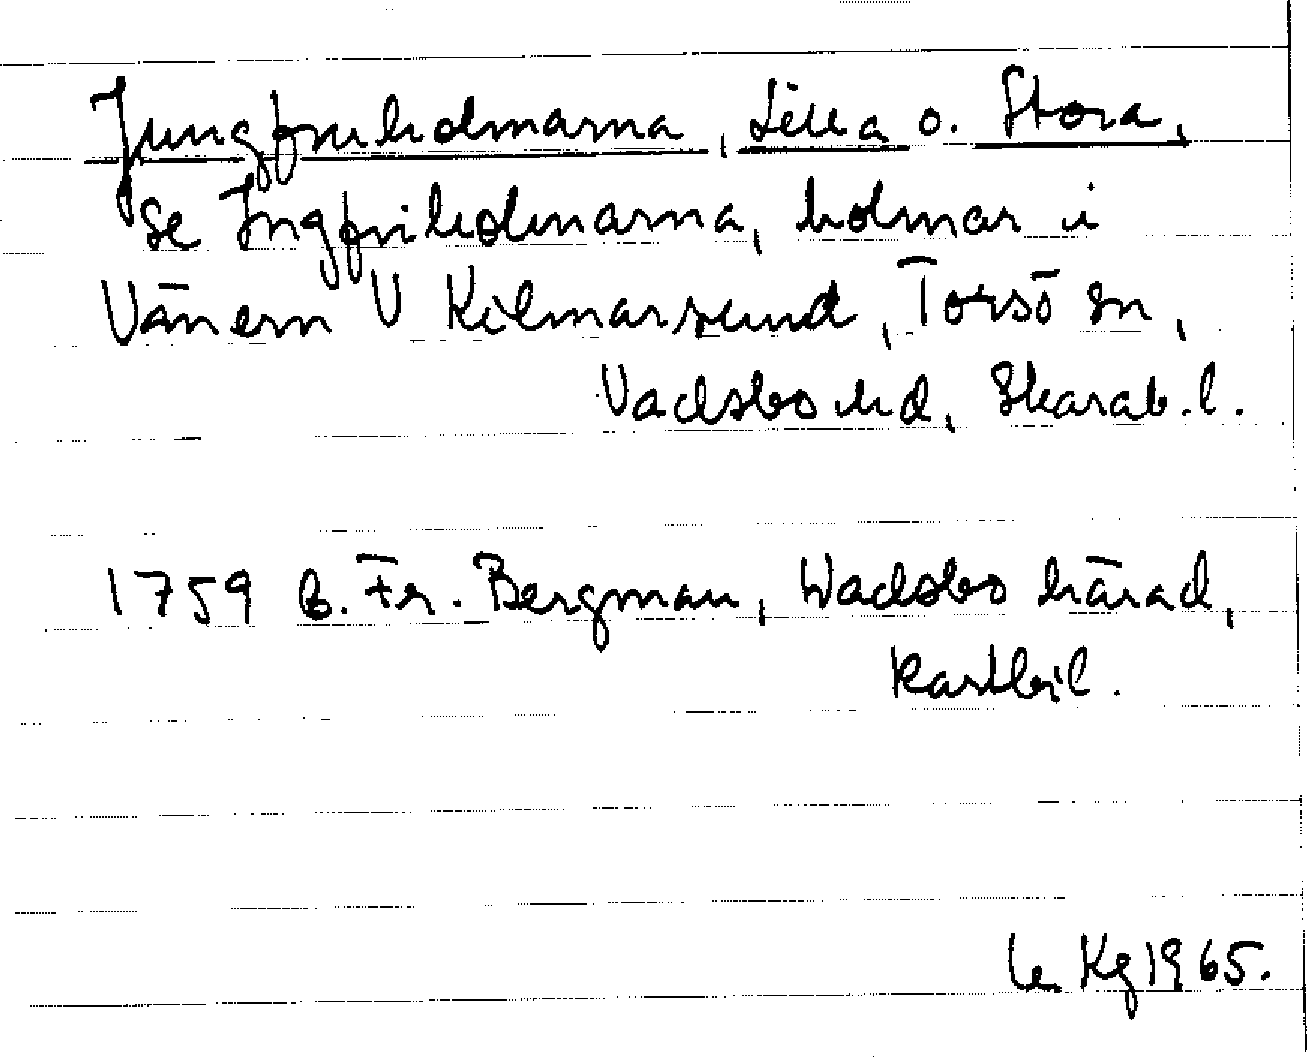 Jungfruholmarna, Lilla o. Stora,
se Jngfriholmarna, holmar i
Vänern V Kilmarsund, Torsö sn,
Vadsbo hd, Skarab. l.
1759 B. Fr. Bergman, Wadsbo härad,
kartbil.
Le Kg 1965.